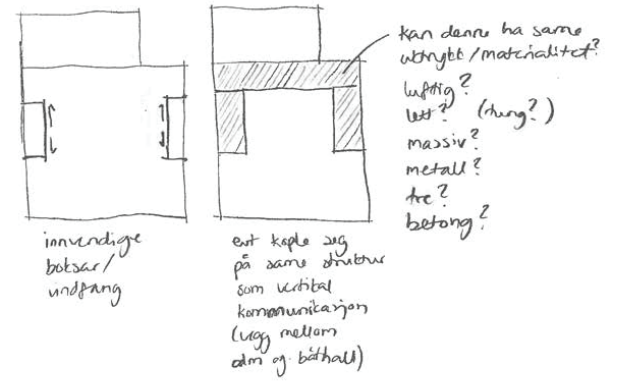 kan denne ha same
uttrykk/materialitet?
luftig?
lett? (tung?)
massiv?
metall?
tre?
betong?
innvendige
boksar/
vindfang
evt kople seg
på same struktur
som vertikal
kommunikasjon
(vegg mellom
adm og båthall)